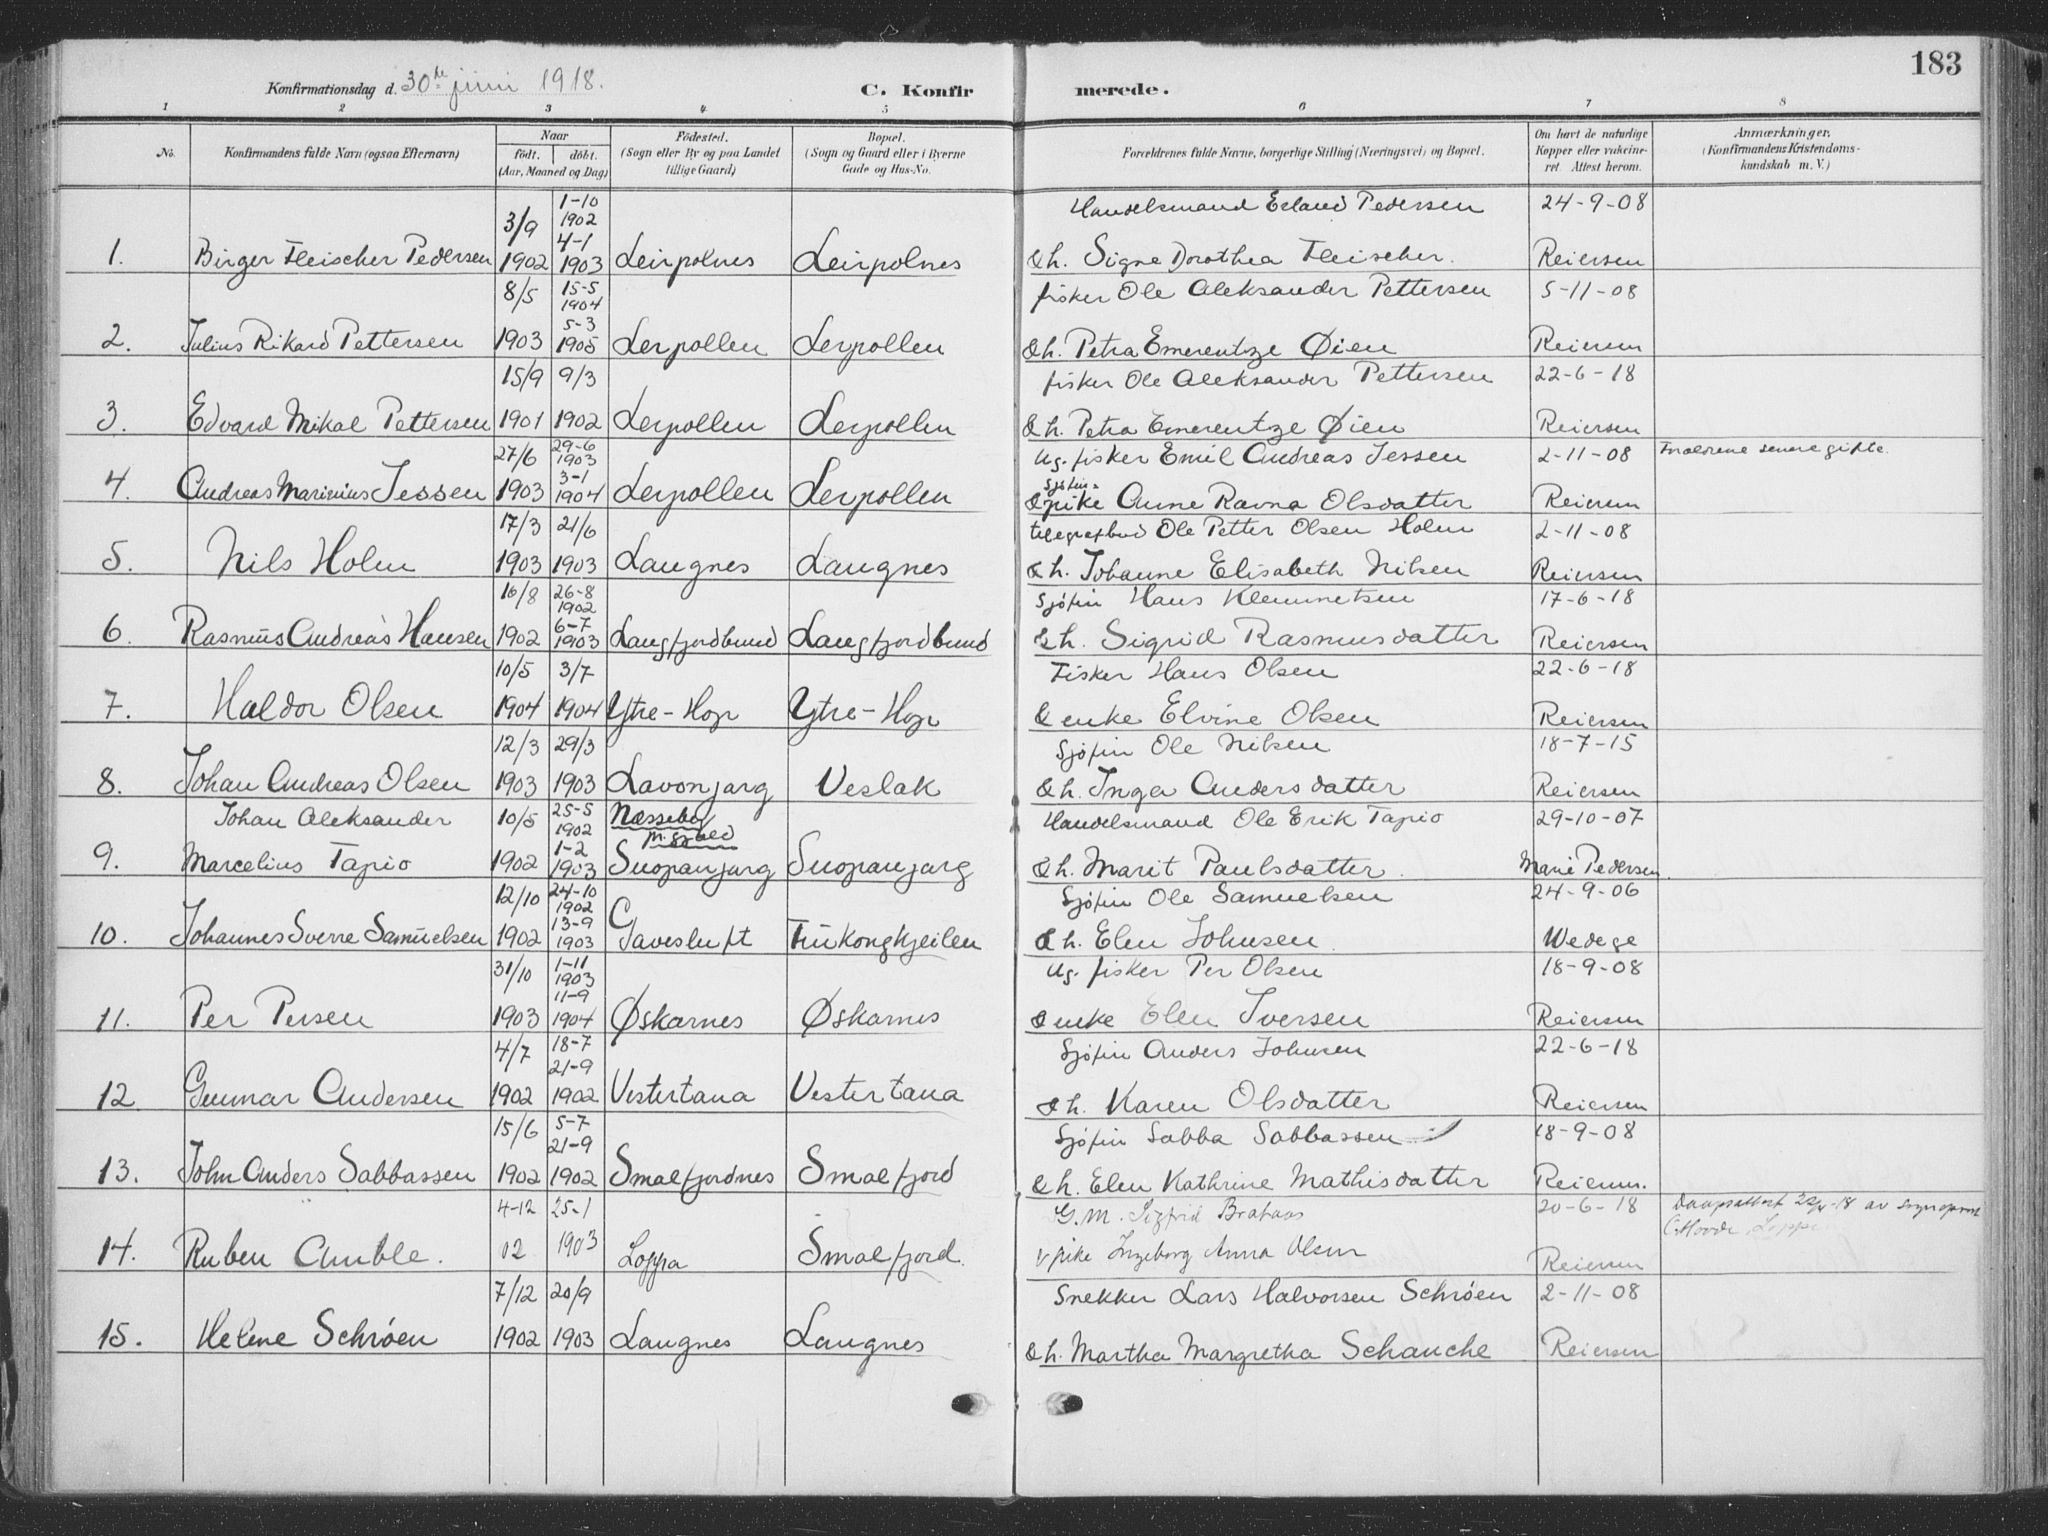 183
Konfirmationsdag d. 30te juni 1918.
C. Konfirmerede.
1 2 3 4 5 6 7 8
No.
Konfirmandens fulde Navn (ogsaa Efternavn)
Naar
födt. döbt.
(Aar, Maaned og Dag)
Födested.
(Sogn eller By og paa Landet tillige Gaard)
Bopæl.
(Sogn og Gaard eller i Byerne Gade og Hus-No.
Forældrenes fulde Navne, borgerlige Stilling (Næringsvei) og Bopæl.
Om havt de naturlige Kopper eller vakcineret. Attest herom.
Anmærkninger.
(Konfirmandens Kristendomskundskab m. V.)
1. Birger Fleischer Pedersen 3/9 1902 1-10 1902 4-1 1903 Leirpolnes Leirpolnes Handelsmand Erland Pedersen & h. Signe Dorothea Fleischer. 24-9-08 Reiersen
2. Julius Rikard Pettersen 8/5 1903 15-5 1904 5-3 1905 Lerpollen Lerpollen fisker Ole Aleksander Pettersen & h. Petra Emerentze Øien 5-11-08 Reiersen
3. Edvard Mikal Pettersen 15/9 1901 9/3 1902 Lerpollen Lerpollen fisker Ole Aleksander Pettersen & h. Petra Emerentze Øien 22-6-18 Reiersen
4. Andreas Marinius Jessen 27/6 1903 29-6 1903 3-1 1904 Lerpollen Lerpollen Ug. fisker Emil Andreas Jessen & sjøfin. pike Anne Ravna Olsdatter 2-11-08 Reiersen Forældrene senere gifte.
5. Nils Holm 17/3 1903 21/6 1903 Langnes Langnes telegrafbud Ole Petter Olsen Holm & h. Johanne Elisabeth Nilsen 2-11-08 Reiersen
6. Rasmus Andreas Hansen 16/8 1902 26-8 1902 6-7 1903 Langfjordbund Langfjordbund Sjøfin Hans Klemmetsen & h. Sigrid Rasmusdatter 17-6-18 Reiersen
7. Haldor Olsen 10/5 1904 3/7 1904 Ytre-Hop Ytre-Hop Fisker Hans Olsen & enke Elvine Olsen 22-6-18 Reiersen
8. Johan Andreas Olsen 12/3 1903 29/3 1903 Lavonjarg Veslak Sjøfin Ole Nilsen & h. Inga Andersdatter 18-7-15 Reiersen
9. Johan Aleksander Marcelius Tapio 10/5 1902 25-5 1902 1-2 1903 Næsseby Suopanjarg Suopanjarg Handelsmand Ole Erik Tapio & h. Marit Paulsdatter. 29-10-07 Marie Pedersen.
10. Johannes Sverre Samuelsen 12/10 1902 24-10 1902 13-9 1903 Gavesluft Sjøfin Ole Samuelsen & h. Elen Johnsen. 24-9-06 Wedege
11. Per Persen 31/10 1903 1-11 1903 11-9 1904 Øskarnes Øskarnes Ug. fisker Per Olsen & enke Elen Iversen 18-9-08 Reiersen
12. Gunnar Andersen 4/7 1902 18-7 21-9 1902 Vestertana Vestertana Sjøfin Anders Johnsen & h. Karen Olsdatter 22-6-18 Reiersen
13. John Anders Sabbassen 15/6 1902 5-7 21-9 1902 Smalfjordnes Smalfjord Sjøfin Sabba Sabbassen & h. Elen Kathrine Mathisdatter 18-9-08 Reiersen.
14. Ruben Amble. 4-12 02 25-1 1903 Loppa Smalfjord. G.M. Sigfrid Brahaas & pike Ingeborg Anna Olsen 20-6-18 Reiersen Daapsattest -18 av sogneprest
15. Helene Schrøen 7/12 1902 20/9 1903 Langnes Langnes Snekker Lars Halvorsen Schrøen & h. Martha Margretha Schanche 2-11-08 Reiersen